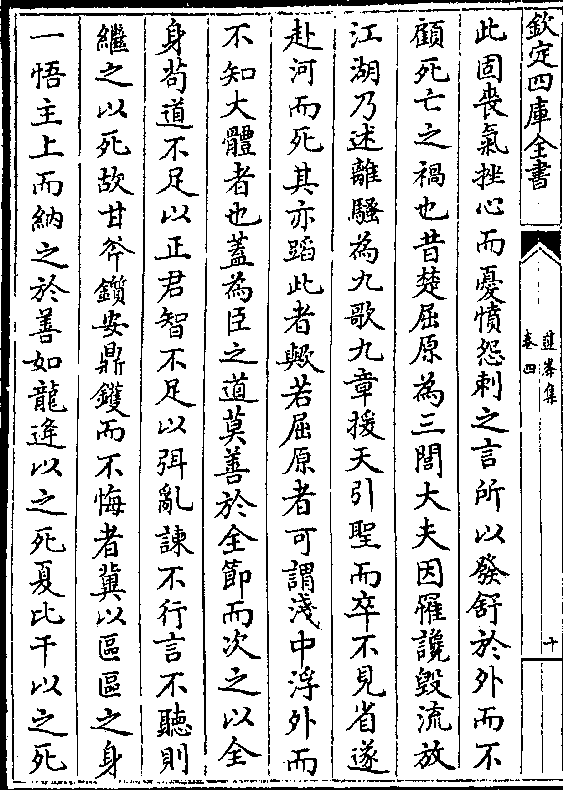 欽定四庫全書
蓮峯集
卷四
十
此固喪氣挫心而憂憤怨刺之言所以發舒於外而不
顧死亡之禍也昔楚屈原為三閭大夫因罹讒毀流放
江湖乃述離騷為九歌九章援天引聖而卒不見省遂
赴河而死其亦蹈此者歟若屈原者可謂淺中浮外而
不知大體者也蓋為臣之道莫善於全節而次之以全
身苟道不足以正君智不足以弭亂諫不行言不聽則
繼之以死故甘斧鑕安鼎鑊而不悔者冀以區區之身
一悟主上而納之於善如龍逄以之死夏比干以之死